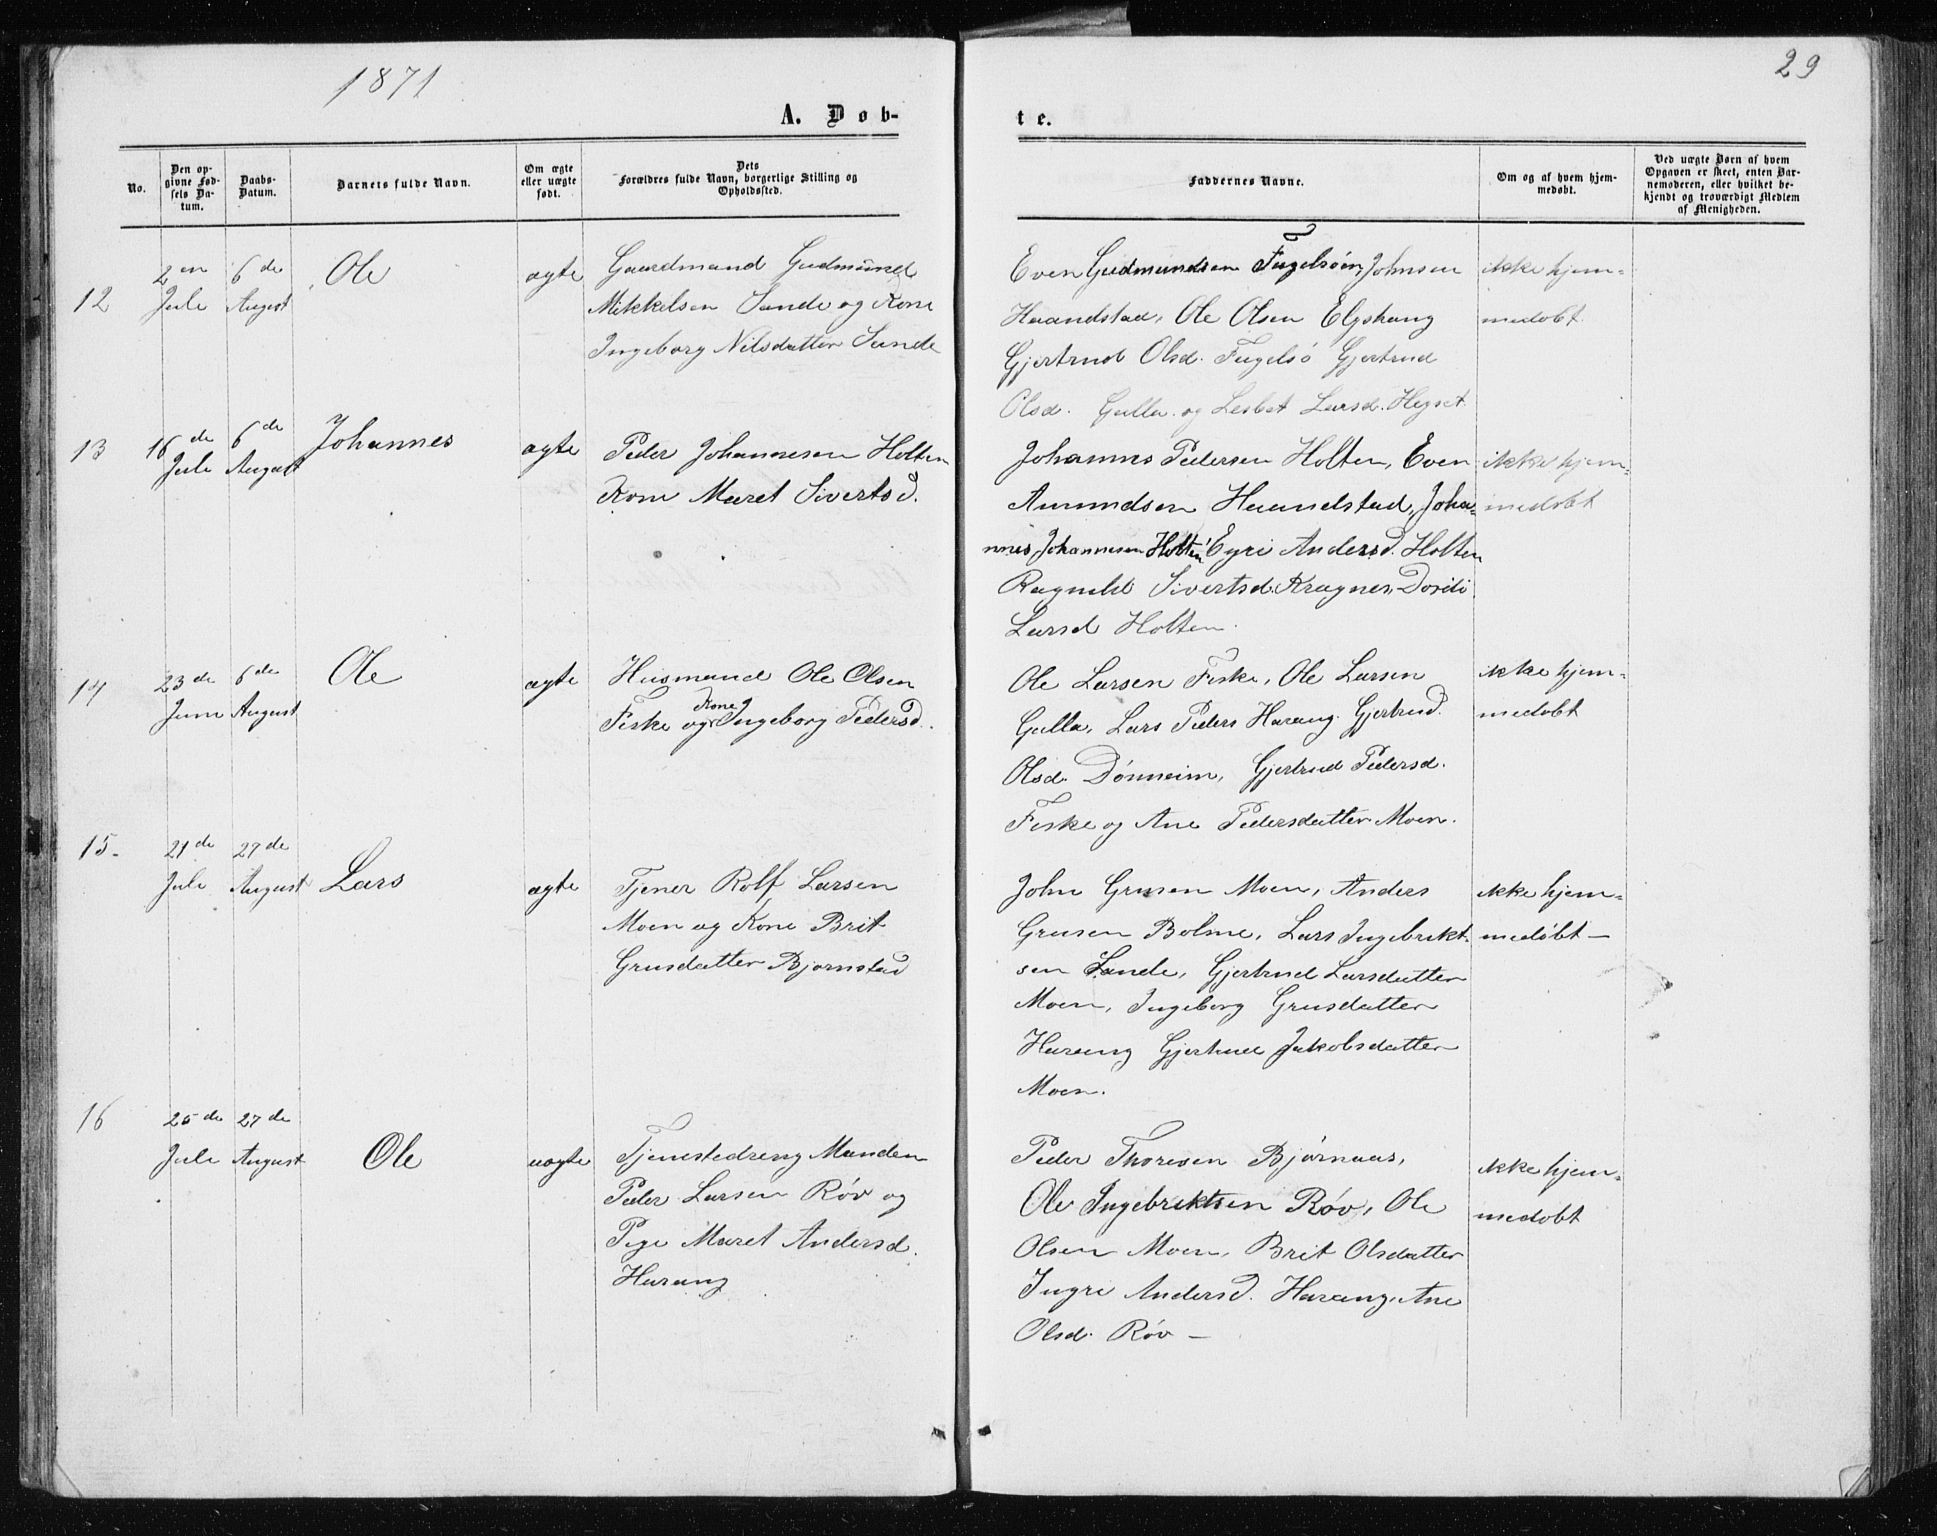 1871
29
A. Døb-
te.
No.
Den op-
givne Fød-
sels Da-
tum.
Daabs-
Datum.
Barnets fulde Navn.
Om ægte
eller uægte
født.
Dets
Forældres fulde Navn, borgerlige Stilling og
Opholdssted.
Faddernes Navne.
Om og af hvem hjem-
medøbt.
Ved uægte Børn af hvem
Opgaven er skeet, enten Bar-
nemoderen, eller hvilket be-
kjendt og troværdigt Medlem
af Menigheden.
12
2en
Jule
6de
August
Ole
ægte
Gaardmand Gudmund
Mikkelsen Sande og Kone
Ingeborg Nilsdatter Sande
Even Gudmundsen Fugelsöen, Johnsen
Haandstad, Ole Olsen Elgshaug
Gjertrud Olsd. Fugelsö Gjertrud
Olsd. Gulla og Lesbet Larsd. Hegset
ikke hjem-
medøbt
13
16de
Jule
6de
August
Johannes
ægte
Peder Johannesen Holten
Kone Maret Sivertsd.
Johannes Pedersen Holten, Even
Amundsen Haandstad, Joha-
nnes Johannesen Holten Eyri Andersd. Holten
Ragnild Sivertsd. Kragnes, Dordi
Larsd Holten.
ikke hjem-
medøbt
14
23de
Juni
6de
August
Ole
ægte
Husmand Ole Olsen
Fiske og Kone Ingeborg Pedersd.
Ole Larsen Fiske, Ole Larsen
Gulla, Lars Peders Harang. Gjertrud.
Olsd. Dönneim, Gjertrud Pedersd.
Fiske og Ane Pedersdatter Moen.
ikke hjem-
medøbt
15.
21de
Jule
27de
August
Lars
ægte
Tjener Rolf Larsen
Moen og Kone Brit
Grusdatter Bjørnstad
John Grusen Moen, Anders
Grusen Bolme, Lars Ingebrikt-
sen Sande, Gjertrud Larsdatter
Moen, Ingeborg Grusdatter
Harang Gjertrud Jakobsdatter
Moen.
ikke hjem-
medøbt —
16
25de
Jule
27de
August
Ole
uægte
Tjenestedreng Manden
Peder Larsen Röv og
Pige Maret Andersd.
Harang
Peder Thoresen Bjørnaas,
Ole Ingebriktsen Röv, Ole
Olsen Moen, Brit Olsdatter
Ingri Andersd. Harang, Ane
Olsd. Röv —
ikke hjem-
medøbt